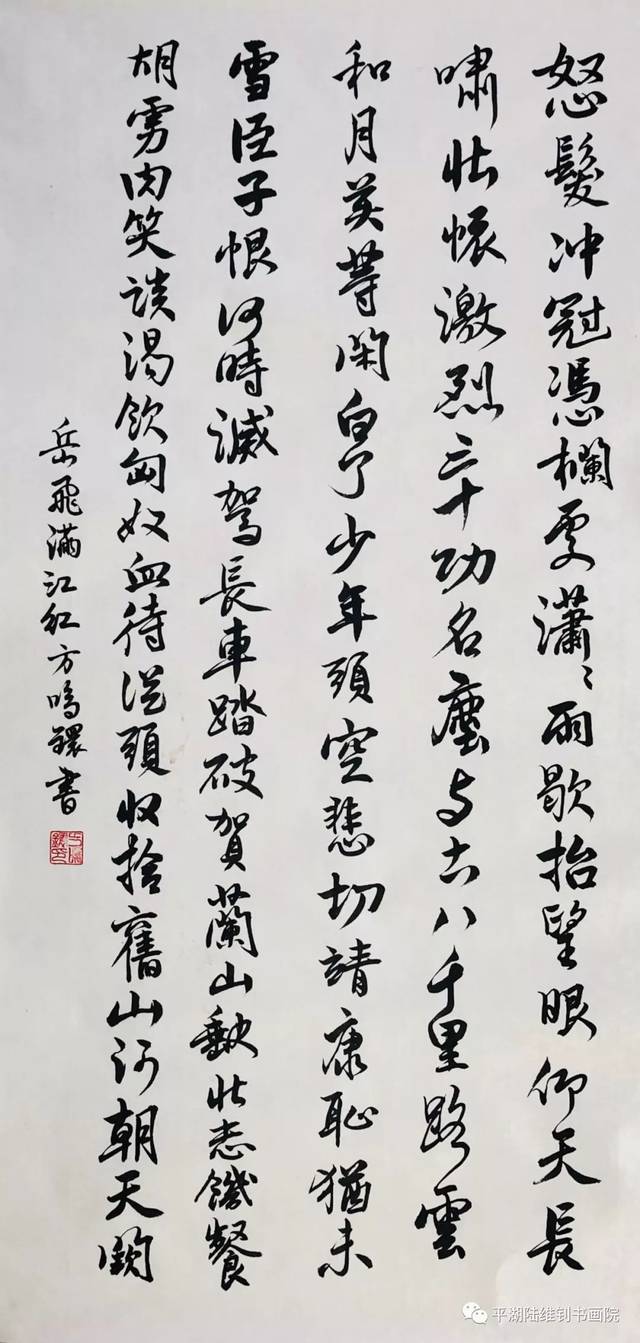 怒髮冲冠憑欄處瀟〻雨歇抬望眼仰天長
嘯壯懷激烈三十功名塵与土八千里路雲
和月莫等閑白了少年頭空悲切靖康恥猶未
雪臣子恨何時滅駕長車踏破賀蘭山缺壯志饑餐
胡虜肉笑談渴飲匈奴血待從頭收捨舊山河朝天闕
岳飛滿江紅方鳴鐶書
平湖陆维钊书画院